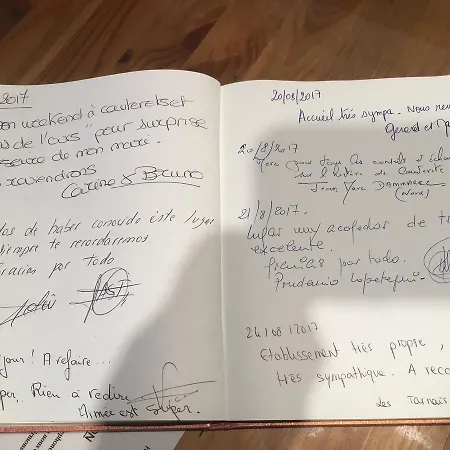 2017
on weekend à cauterets et
de l'ours" pour surprise
de mon mari.
reviendrons
Carine & Bruno
de haber conocido este lugar
siempre te recordaremos
Gracias por todo
jour! A refaire...
per, Rien à redire
Aimée est super.
20/08/2017
Accueil très sympa. Nous
Gerard et
20/8/2017
Merci pour tous les conseils et
sur l'histoire de Cauterets
Jean Marc
(Nord)
21/8/2017.
Lugar muy acogedor de
excelente.
Gracias por todo.
Prudencio Lopetegui.
24/08/2017
Etablissement très propre,
très sympathique. A reco
Les Tarnais